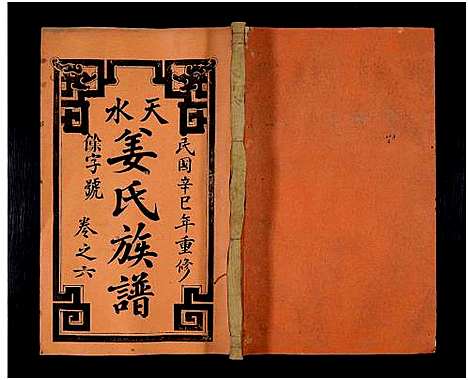 天水
民国辛巳年重修
姜氏族譜
餘字號
卷之六